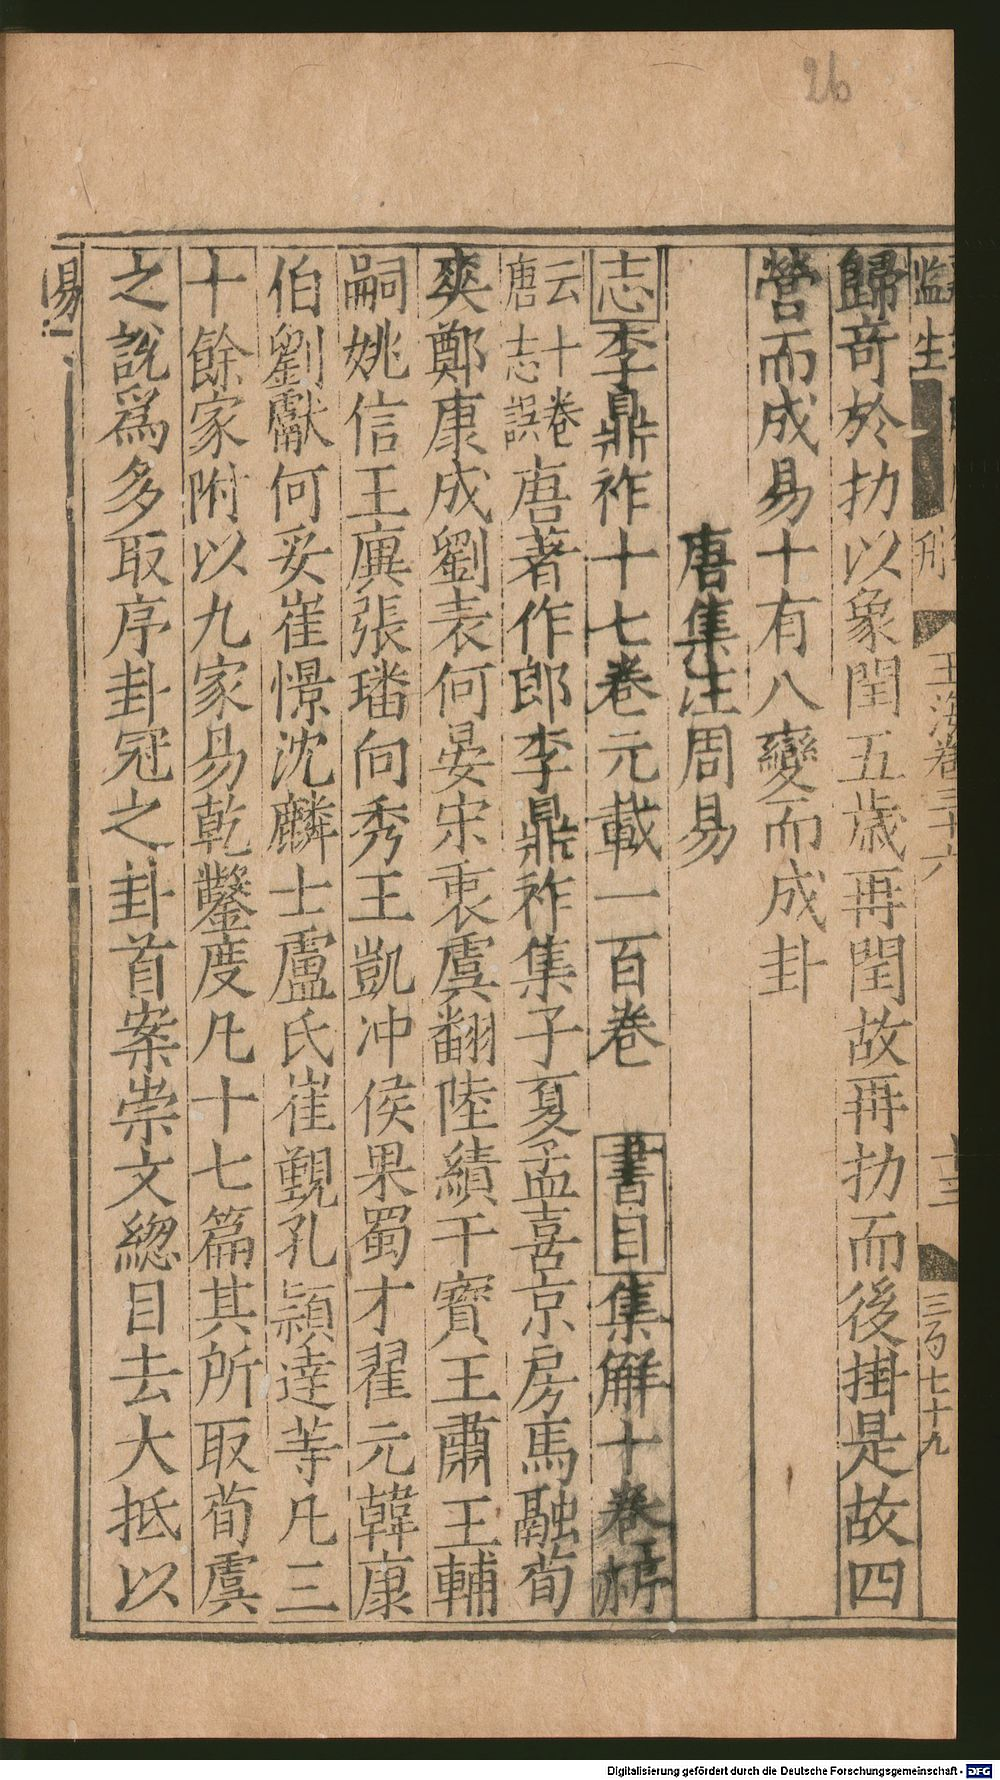 26
監生
刊
玉海卷三十六
十三
三百七十九
歸奇於扐以象閏五歲再閏故再扐而後掛是故四
營而成易十有八變而成卦
唐集注周易
志李鼎祚十七卷元載一百卷 書目集解十卷
云十卷
唐志誤
唐著作郎李鼎祚集子夏孟喜京房馬融荀
爽鄭康成劉表何晏宋衷虞翻陸績干寶王肅王輔
嗣姚信王廙張璠向秀王凱冲侯果蜀才翟元韓康
伯劉瓛何妥崔憬沈驎士盧氏崔覲孔穎達等凡三
十餘家附以九家易乾鑿度凡十七篇其所取荀虞
之說爲多取序卦冠之卦首案崇文緫目去大抵以
易
Digitalisierung gefördert durch die Deutsche Forschungsgemeinschaft - DFG